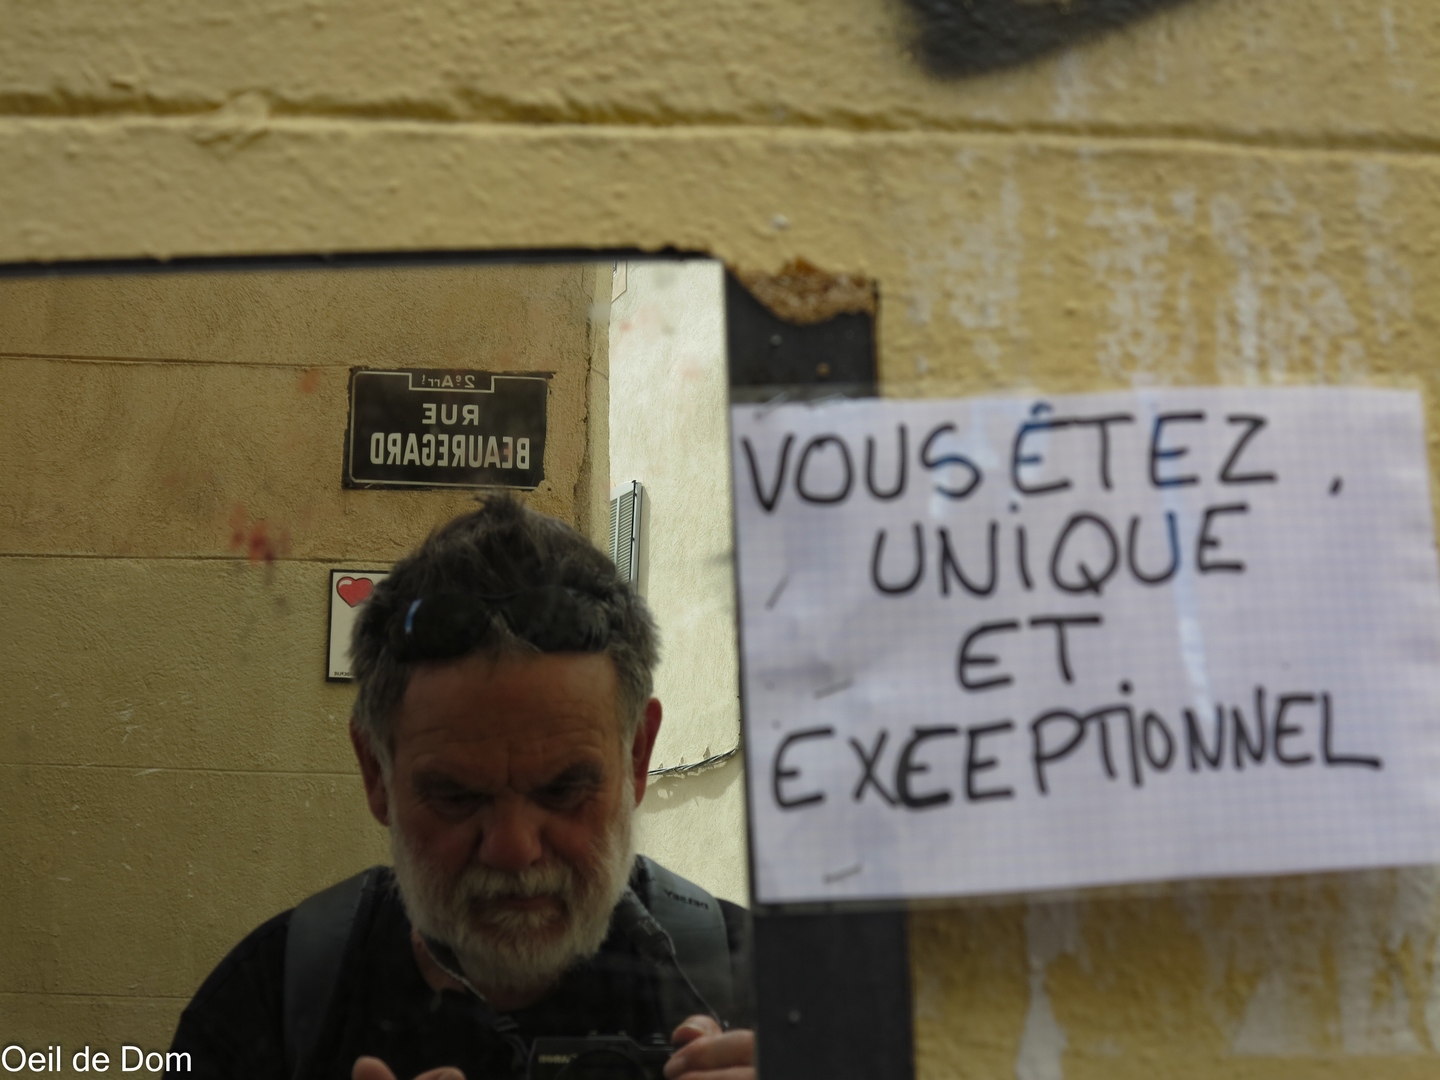 2e Arrt
RUE
BEAUREGARD
VOUS ÊTEZ.
UNIQUE
ET
EXCEPTIONNEL
Oeil de Dom